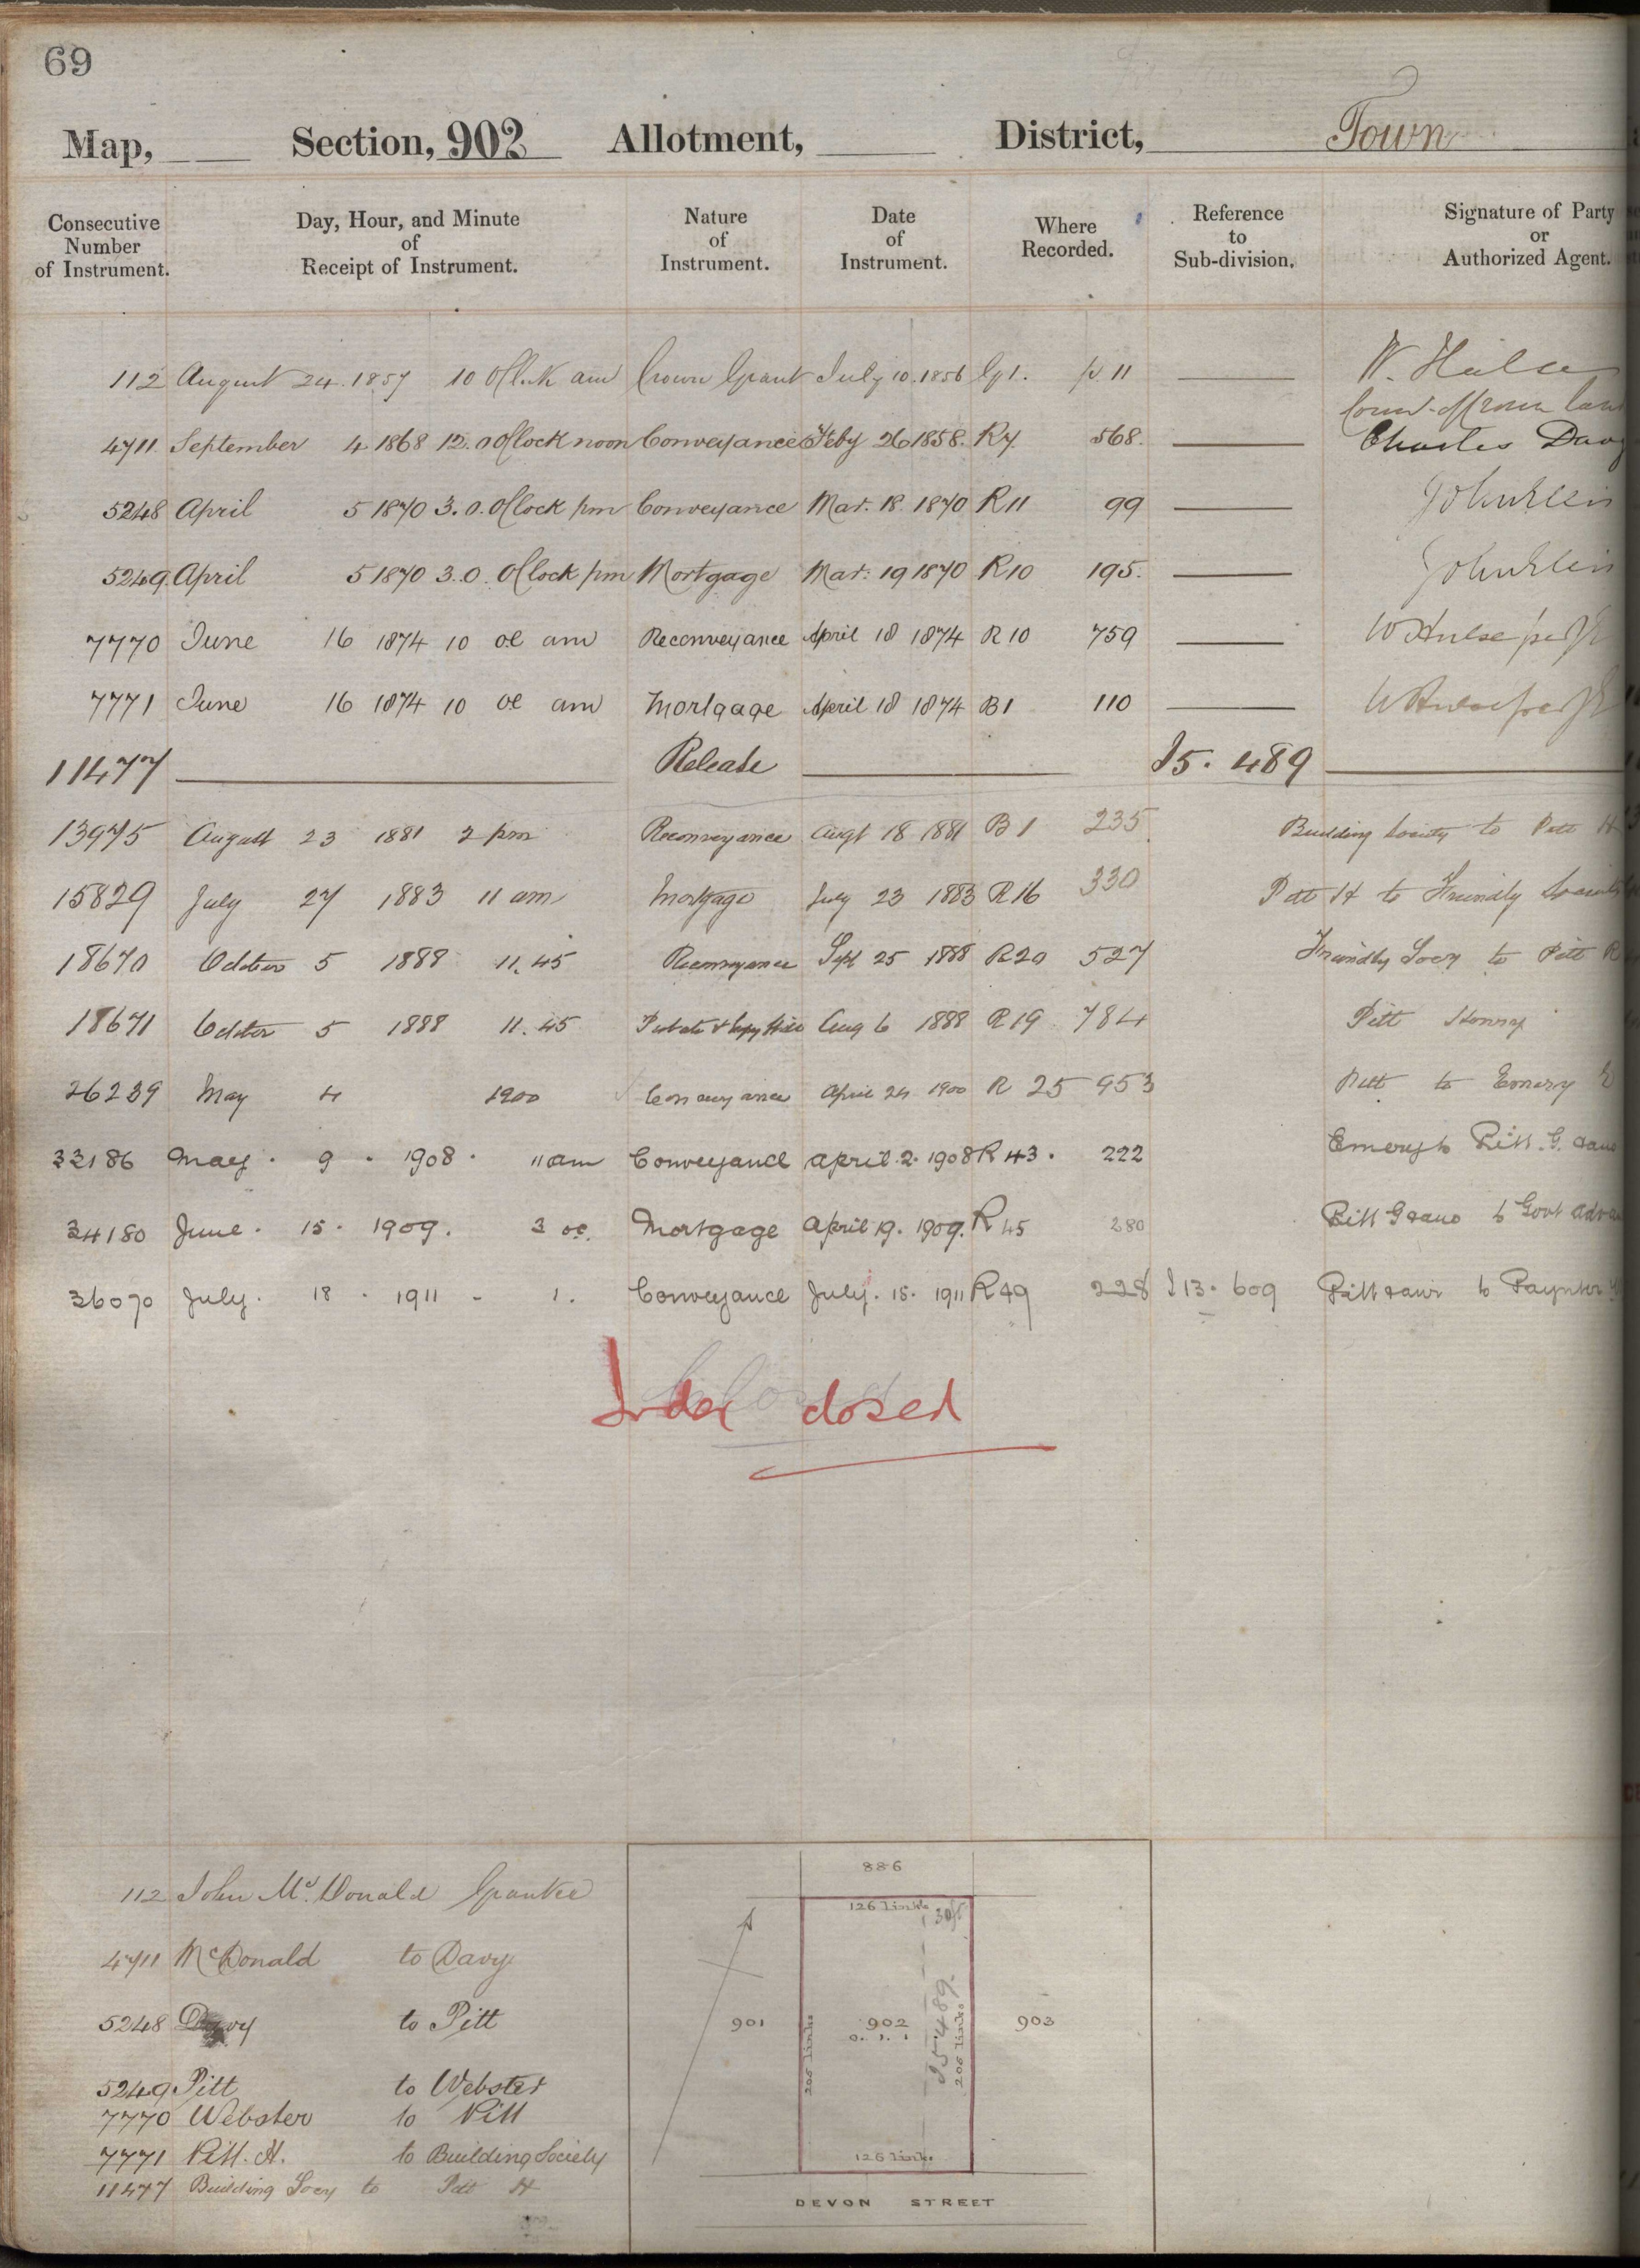 69
Map, Section, 902 Allotment, District, Town
Consecutive Number of Instrument. Day, Hour, and Minute of Receipt of Instrument. Nature of Instrument. Date of Instrument. Where Recorded. Reference to Sub-division. Signature of Party or Authorized Agent.
112 August 24. 1857 10 O'Clock am Crown Grant July 10. 1856 G 1. p 11 W. Halse
4711 September 4 1868 12. 0 O'Clock noon Conveyance Feby 26 1858. R 7 568. Charles Davy
5248 April 5 1870 3. 0. O'Clock pm Conveyance Mar: 18. 1870 R 11 99 John
5249 April 5 1870 3. 0. O'Clock pm Mortgage Mar: 19 1870 R 10 195. John
7770 June 16 1874 10 oc am Reconveyance April 18 1874 R 10 759 W Hulse per
7771 June 16 1874 10 oc am Mortgage April 18 1874 B 1 110
11477 Release I 5. 489
13975 August 23 1881 2 pm Reconveyance Augt 18 1881 B 1 235 Building Society to Pitt H
15829 July 27 1883 11 am Mortgage July 23 1883 R 16 330 Pitt H to Friendly Society
18670 October 5 1888 11. 45 Reconveyance Sept 25 1888 R 20 527 Friendly Socy to Pitt
18671 October 5 1888 11. 45 Probate & Copy Will Aug 6 1888 R 19 784 Pitt Henry
26239 May 4 1900 Conveyance April 24 1900 R 25 953 Pitt to Emery
33186 May. 9. 1908. 11 am Conveyance April. 2. 1908 R 43. 222 Emery to Pitt. G. & ano
34180 June. 15. 1909. 3 oc. Mortgage April 19. 1909. R 45 280 Pitt G & ano to Govt Advan
36070 July. 18. 1911 - 1. Conveyance July. 15. 1911 R 49 228 I 13. 609 Pitt & anr to Paynter
Index closed
112 John McDonald Grantee
4711 McDonald to Davy
5248 Davy to Pitt
5249 Pitt to Webster
7770 Webster to Pitt
7771 Pitt. H. to Building Society
11477 Building Socy to Pitt H
886
126 links
30ft
901
205 links
902
0. 1. 1
I 5 489.
205 links
903
126 links
DEVON STREET